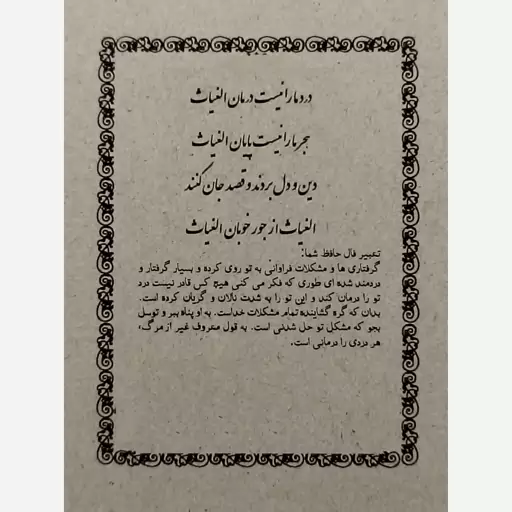 درد ما را نیست درمان الغیاث
هجر ما را نیست پایان الغیاث
دین و دل بردند و قصد جان کنند
الغیاث از جور خوبان الغیاث
تعبیر فال حافظ شما:
گرفتاری ها و مشکلات فراوانی به تو روی کرده و بسیار گرفتار و
دردمند شده ای طوری که فکر می کنی هیچ کس قادر نیست درد
تو را درمان کند و این تو را به شدت نالان و گریان کرده است.
بدان که گره گشاینده تمام مشکلات خداست. به او پناه ببر و توسل
بجو که مشکل تو حل شدنی است. به قول معروف غیر از مرگ،
هر دردی را درمانی است.